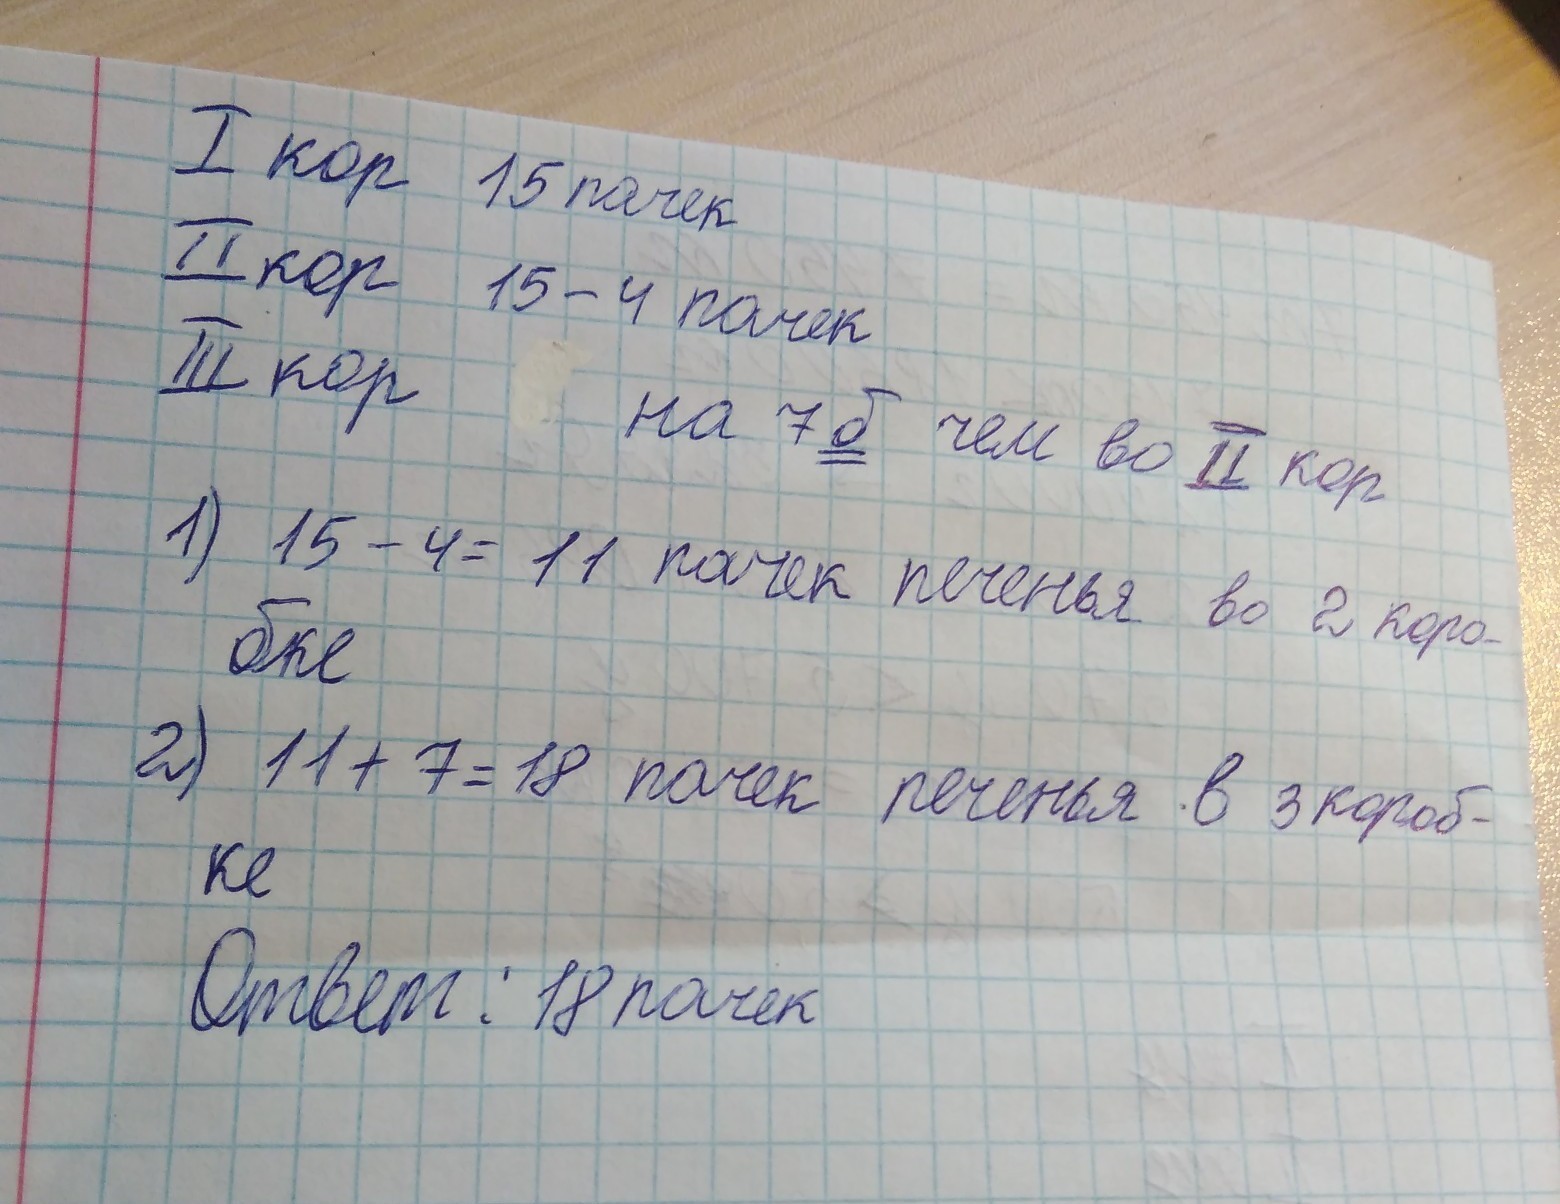 I кор 15 пачек
II кор 15-4 пачек
III кор на 7 б чем во II кор
1) 15-4= 11 пачек печенья во 2 коро-
бке
2) 11+7=18 пачек печенья в 3 короб-
ке
Ответ: 18 пачек